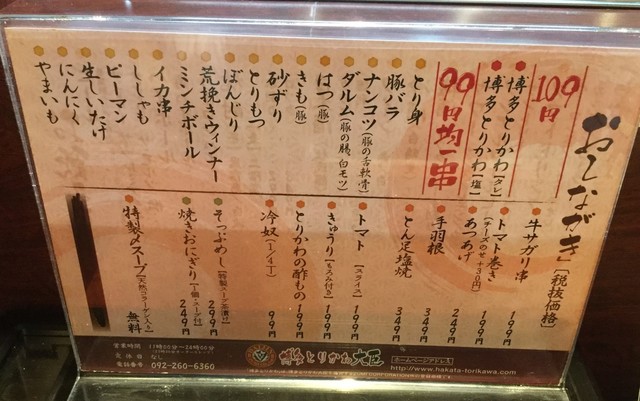 おしながき［税抜価格］
109円
博多とりかわ［タレ］
博多とりかわ［塩］
99円均一串
とり身
豚バラ
ナンコツ（豚の舌軟骨）
ダルム（豚の腸、白モツ）
はつ（豚）
きも（豚）
砂ずり
とりもつ
ぼんじり
荒挽きウィンナー
ミンチボール
イカ串
ししゃも
ピーマン
生しいたけ
にんにく
やまいも
牛サガリ串 199円
トマト巻き 199円
［チーズのせ+30円］
あつあげ 249円
手羽根 349円
とん足塩焼 349円
トマト［スライス］ 199円
きゅうり［もろみ付き］ 199円
とりかわの酢もの 199円
冷奴（1/4丁） 99円
そっぷめし［特製スープ茶漬け］ 299円
焼きおにぎり［1個、スープ付］ 249円
特製〆スープ［天然コラーゲン入り］ 無料
営業時間 17時00分～24時00分
定休日 なし
電話番号 092-260-6360
博多とりかわ大臣
ホームページアドレス
http://www.hakata-torikawa.com/